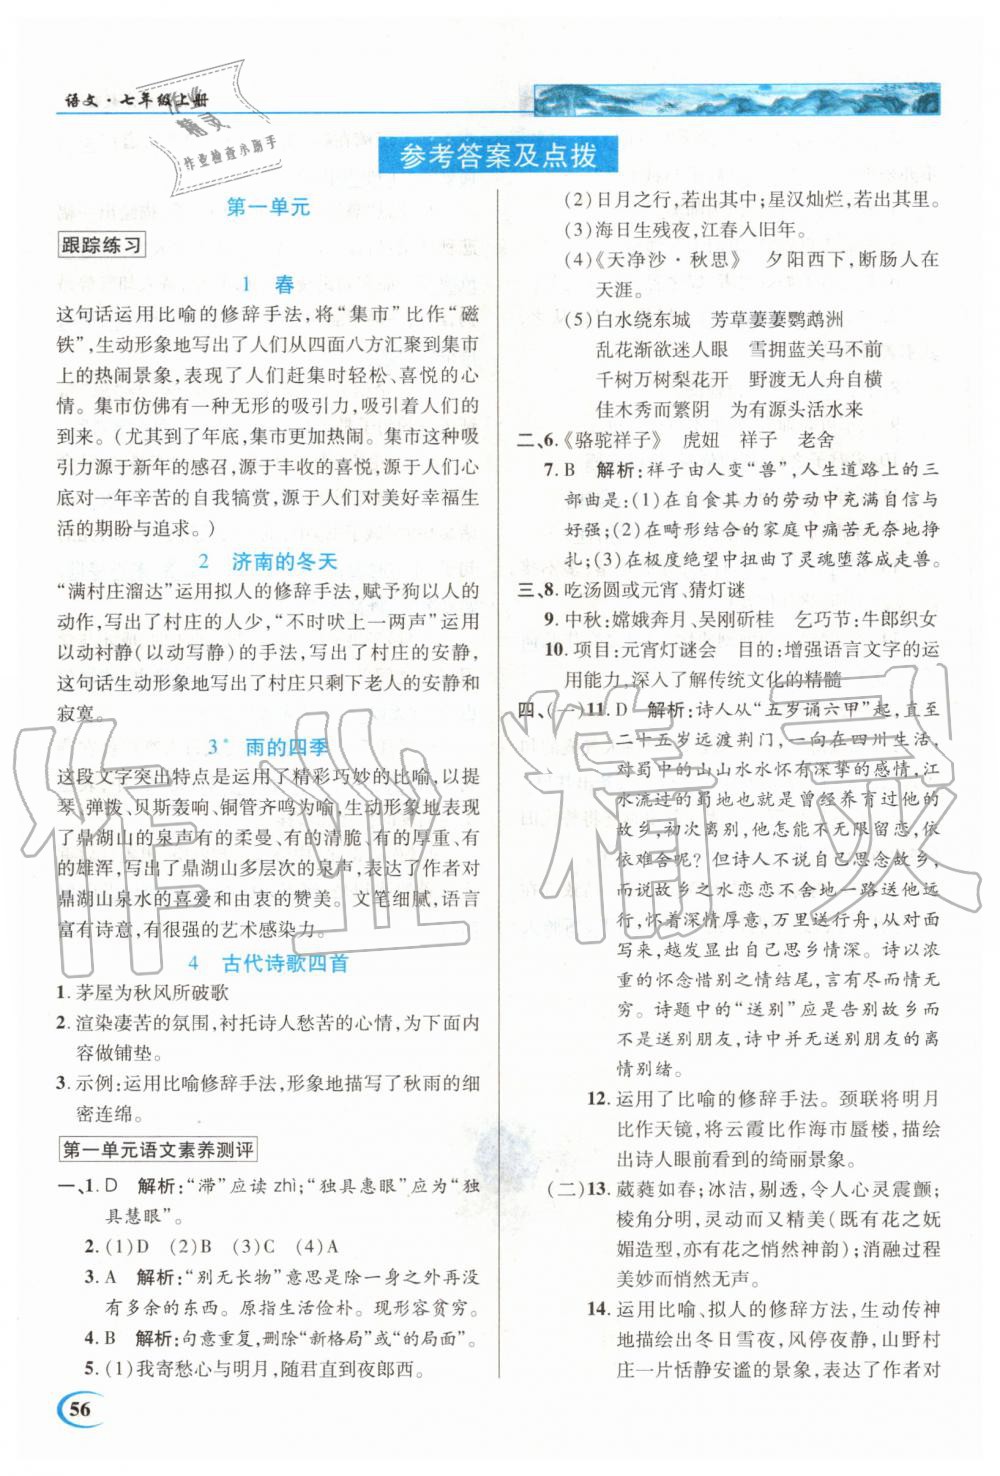 语文·七年级上册
作业
精灵
作业检查小助手
参考答案及点拨
第一单元
跟踪练习
1 春
这句话运用比喻的修辞手法,将“集市”比作“磁
铁”,生动形象地写出了人们从四面八方汇聚到集市
上的热闹景象,表现了人们赶集时轻松、喜悦的心
情。集市仿佛有一种无形的吸引力,吸引着人们的
到来。(尤其到了年底,集市更加热闹。集市这种吸
引力源于新年的感召,源于丰收的喜悦,源于人们心
底对一年辛苦的自我犒赏,源于人们对美好幸福生
活的期盼与追求。)
2 济南的冬天
“满村庄溜达”运用拟人的修辞手法,赋予狗以人的
动作,写出了村庄的人少,“不时吠上一两声”运用
以动衬静(以动写静)的手法,写出了村庄的安静,
这句话生动形象地写出了村庄只剩下老人的安静和
寂寞。
3* 雨的四季
这段文字突出特点是运用了精彩巧妙的比喻,以提
琴、弹拨、贝斯轰响、铜管齐鸣为喻,生动形象地表现
了鼎湖山的泉声有的柔曼、有的清脆、有的厚重、有
的雄浑,写出了鼎湖山多层次的泉声,表达了作者对
鼎湖山泉水的喜爱和由衷的赞美。文笔细腻,语言
富有诗意,有很强的艺术感染力。
4 古代诗歌四首
1. 茅屋为秋风所破歌
2. 渲染凄苦的氛围,衬托诗人愁苦的心情,为下面内
容做铺垫。
3. 示例:运用比喻修辞手法,形象地描写了秋雨的细
密连绵。
第一单元语文素养测评
一、1. D 解析:“滞”应读 zhì;“独具惠眼”应为“独
具慧眼”。
2. (1)D (2)B (3)C (4)A
3. A 解析:“别无长物”意思是除一身之外再没
有多余的东西。原指生活俭朴。现形容贫穷。
4. B 解析:句意重复,删除“新格局”或“的局面”。
5. (1)我寄愁心与明月,随君直到夜郎西。
(2)日月之行,若出其中;星汉灿烂,若出其里。
(3)海日生残夜,江春入旧年。
(4)《天净沙·秋思》 夕阳西下,断肠人在
天涯。
(5)白水绕东城 芳草萋萋鹦鹉洲
乱花渐欲迷人眼 雪拥蓝关马不前
千树万树梨花开 野渡无人舟自横
佳木秀而繁阴 为有源头活水来
二、6.《骆驼祥子》 虎妞 祥子 老舍
7. B 解析:祥子由人变“兽”,人生道路上的三
部曲是:(1)在自食其力的劳动中充满自信与
好强;(2)在畸形结合的家庭中痛苦无奈地挣
扎;(3)在极度绝望中扭曲了灵魂堕落成走兽。
三、8. 吃汤圆或元宵、猜灯谜
9. 中秋:嫦娥奔月、吴刚斫桂 乞巧节:牛郎织女
10. 项目:元宵灯谜会 目的:增强语言文字的运
用能力,深入了解传统文化的精髓
四、(一)11. D 解析:诗人从“五岁诵六甲”起,直至
二十五岁远渡荆门,一向在四川生活,
对蜀中的山山水水怀有深挚的感情,江
水流过的蜀地也就是曾经养育过他的
故乡,初次离别,他怎能不无限留恋,依
依难舍呢?但诗人不说自己思念故乡,
而说故乡之水恋恋不舍地一路送我远
行,怀着深情厚意,万里送行舟,从对面
写来,越发显出自己思乡情深。诗以浓
重的怀念惜别之情结尾,言有尽而情无
穷。诗题中的“送别”应是告别故乡而
不是送别朋友,诗中并无送别朋友的离
情别绪。
12. 运用了比喻的修辞手法。颈联将明月
比作天镜,将云霞比作海市蜃楼,描绘
出诗人眼前看到的绮丽景象。
(二)13. 葳蕤如春;冰洁,剔透,令人心灵震颤;
棱角分明,灵动而又精美(既有花之妩
媚造型,亦有花之悄然神韵);消融过程
美妙而悄然无声。
14. 运用比喻、拟人的修辞方法,生动传神
地描绘出冬日雪夜,风停夜静,山野村
庄一片恬静安谧的景象,表达了作者对
56
作业精灵